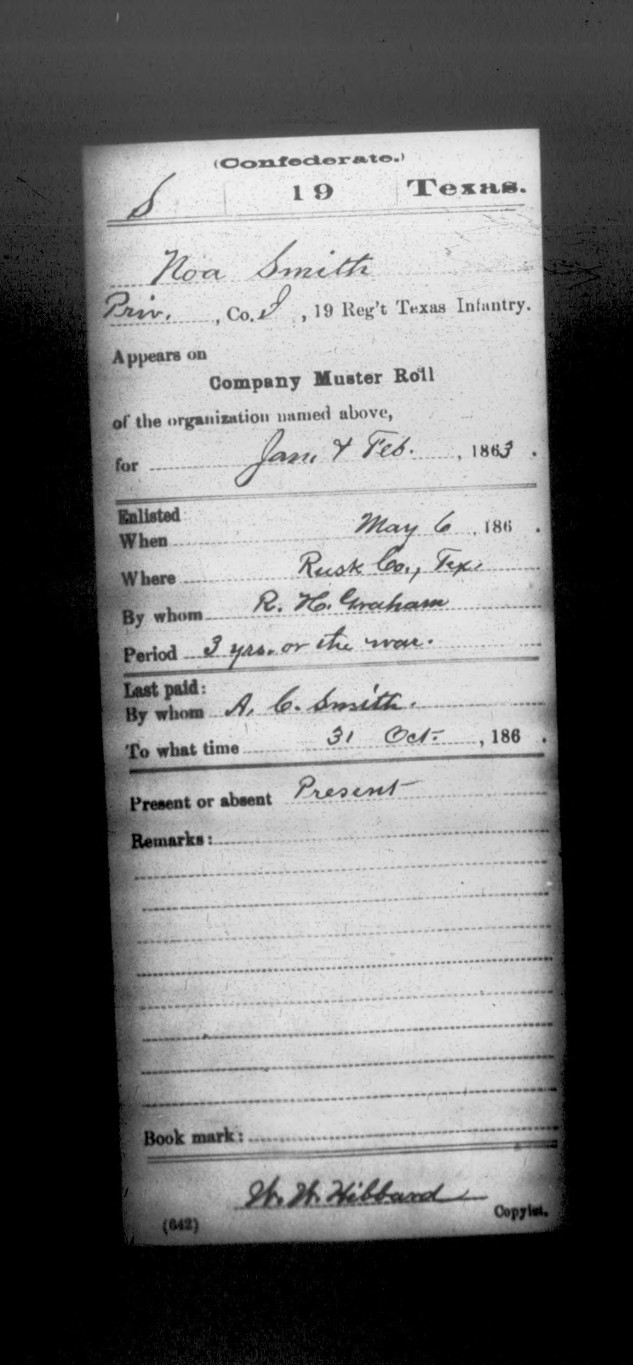 (Confederate.)
S 19 Texas.
Noa Smith
Priv., Co. I, 19 Reg't Texas Infantry.
Appears on
Company Muster Roll
of the organization named above,
for Jan. & Feb., 1863.
Enlisted
When May 6, 186 .
Where Rusk Co., Tex.
By whom R. H. Graham
Period 3 yrs. or the war.
Last paid:
By whom A. C. Smith.
To what time 31 Oct., 186 .
Present or absent Present
Remarks:
Book mark:
W. W. Hibbard
(642) Copyist.